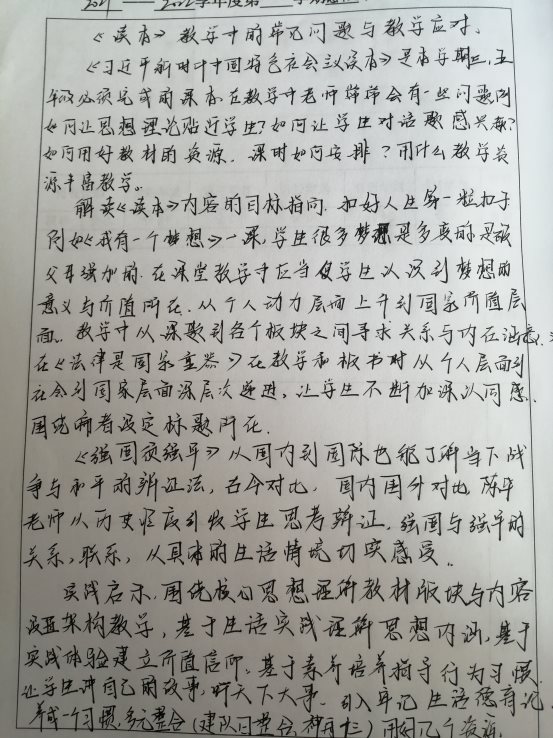 学年度第
《读本》教学中的常见问题与教学应对.
《习近平新时代中国特色社会主义读本》是本学期三、五
年级必须完成的课本.在教学中老师常常会有一些问题.例
如何让思想理论贴近学生?如何让学生对话题感兴趣?
如何用好教材的资源.课时如何安排?用什么教学资
源丰富教学。
解读《读本》内容的目标指向.扣好人生第一粒扣子
例如《我有一个梦想》一课,学生很多梦想是多变的是被
父母强加的.在课堂教学中应当使学生认识到梦想的
意义与价值所在.从个人动力层面上升到国家价值层
面.教学中从课题到各个板块之间寻求关系与内在
在《法律是国家重器》在教学和板书时从个人层面到
社会到国家层面深层次递进,让学生不断加深认同感.
围绕着设定标题所在.
《强国须强军》从国内到国际也能了解当下战
争与和平的辨证法,古今对比,国内国外对比,陈平
老师从历史维度引牧学生思考辨证,强国与强军的
关系,联系,从具体的生活情境切实感受。
实践启示,围绕核心思想理解教材版块与内容
设置架构教学,基于生活实践理解思想内涵,基于
实践体验建立价值信仰,基于素养培养指导行为习惯.
让学生讲自己的故事,听天下大事.引入牢记生活德育论
养成一个习惯.多元整合(建队日整合,神舟十三)用好几个资源